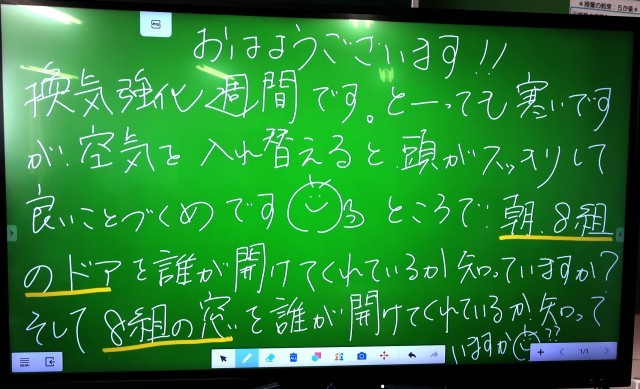 ＊授業の約束：５か条＊
おはようございます!!
換気強化週間です。とーっても寒いです
が、空気を入れ替えると頭がスッキリして
良いことづくめです ところで、朝、8組
のドアを誰が開けてくれているか知っていますか？
そして8組の窓を誰が開けてくれているか知って
いますか??
MENU
1/1